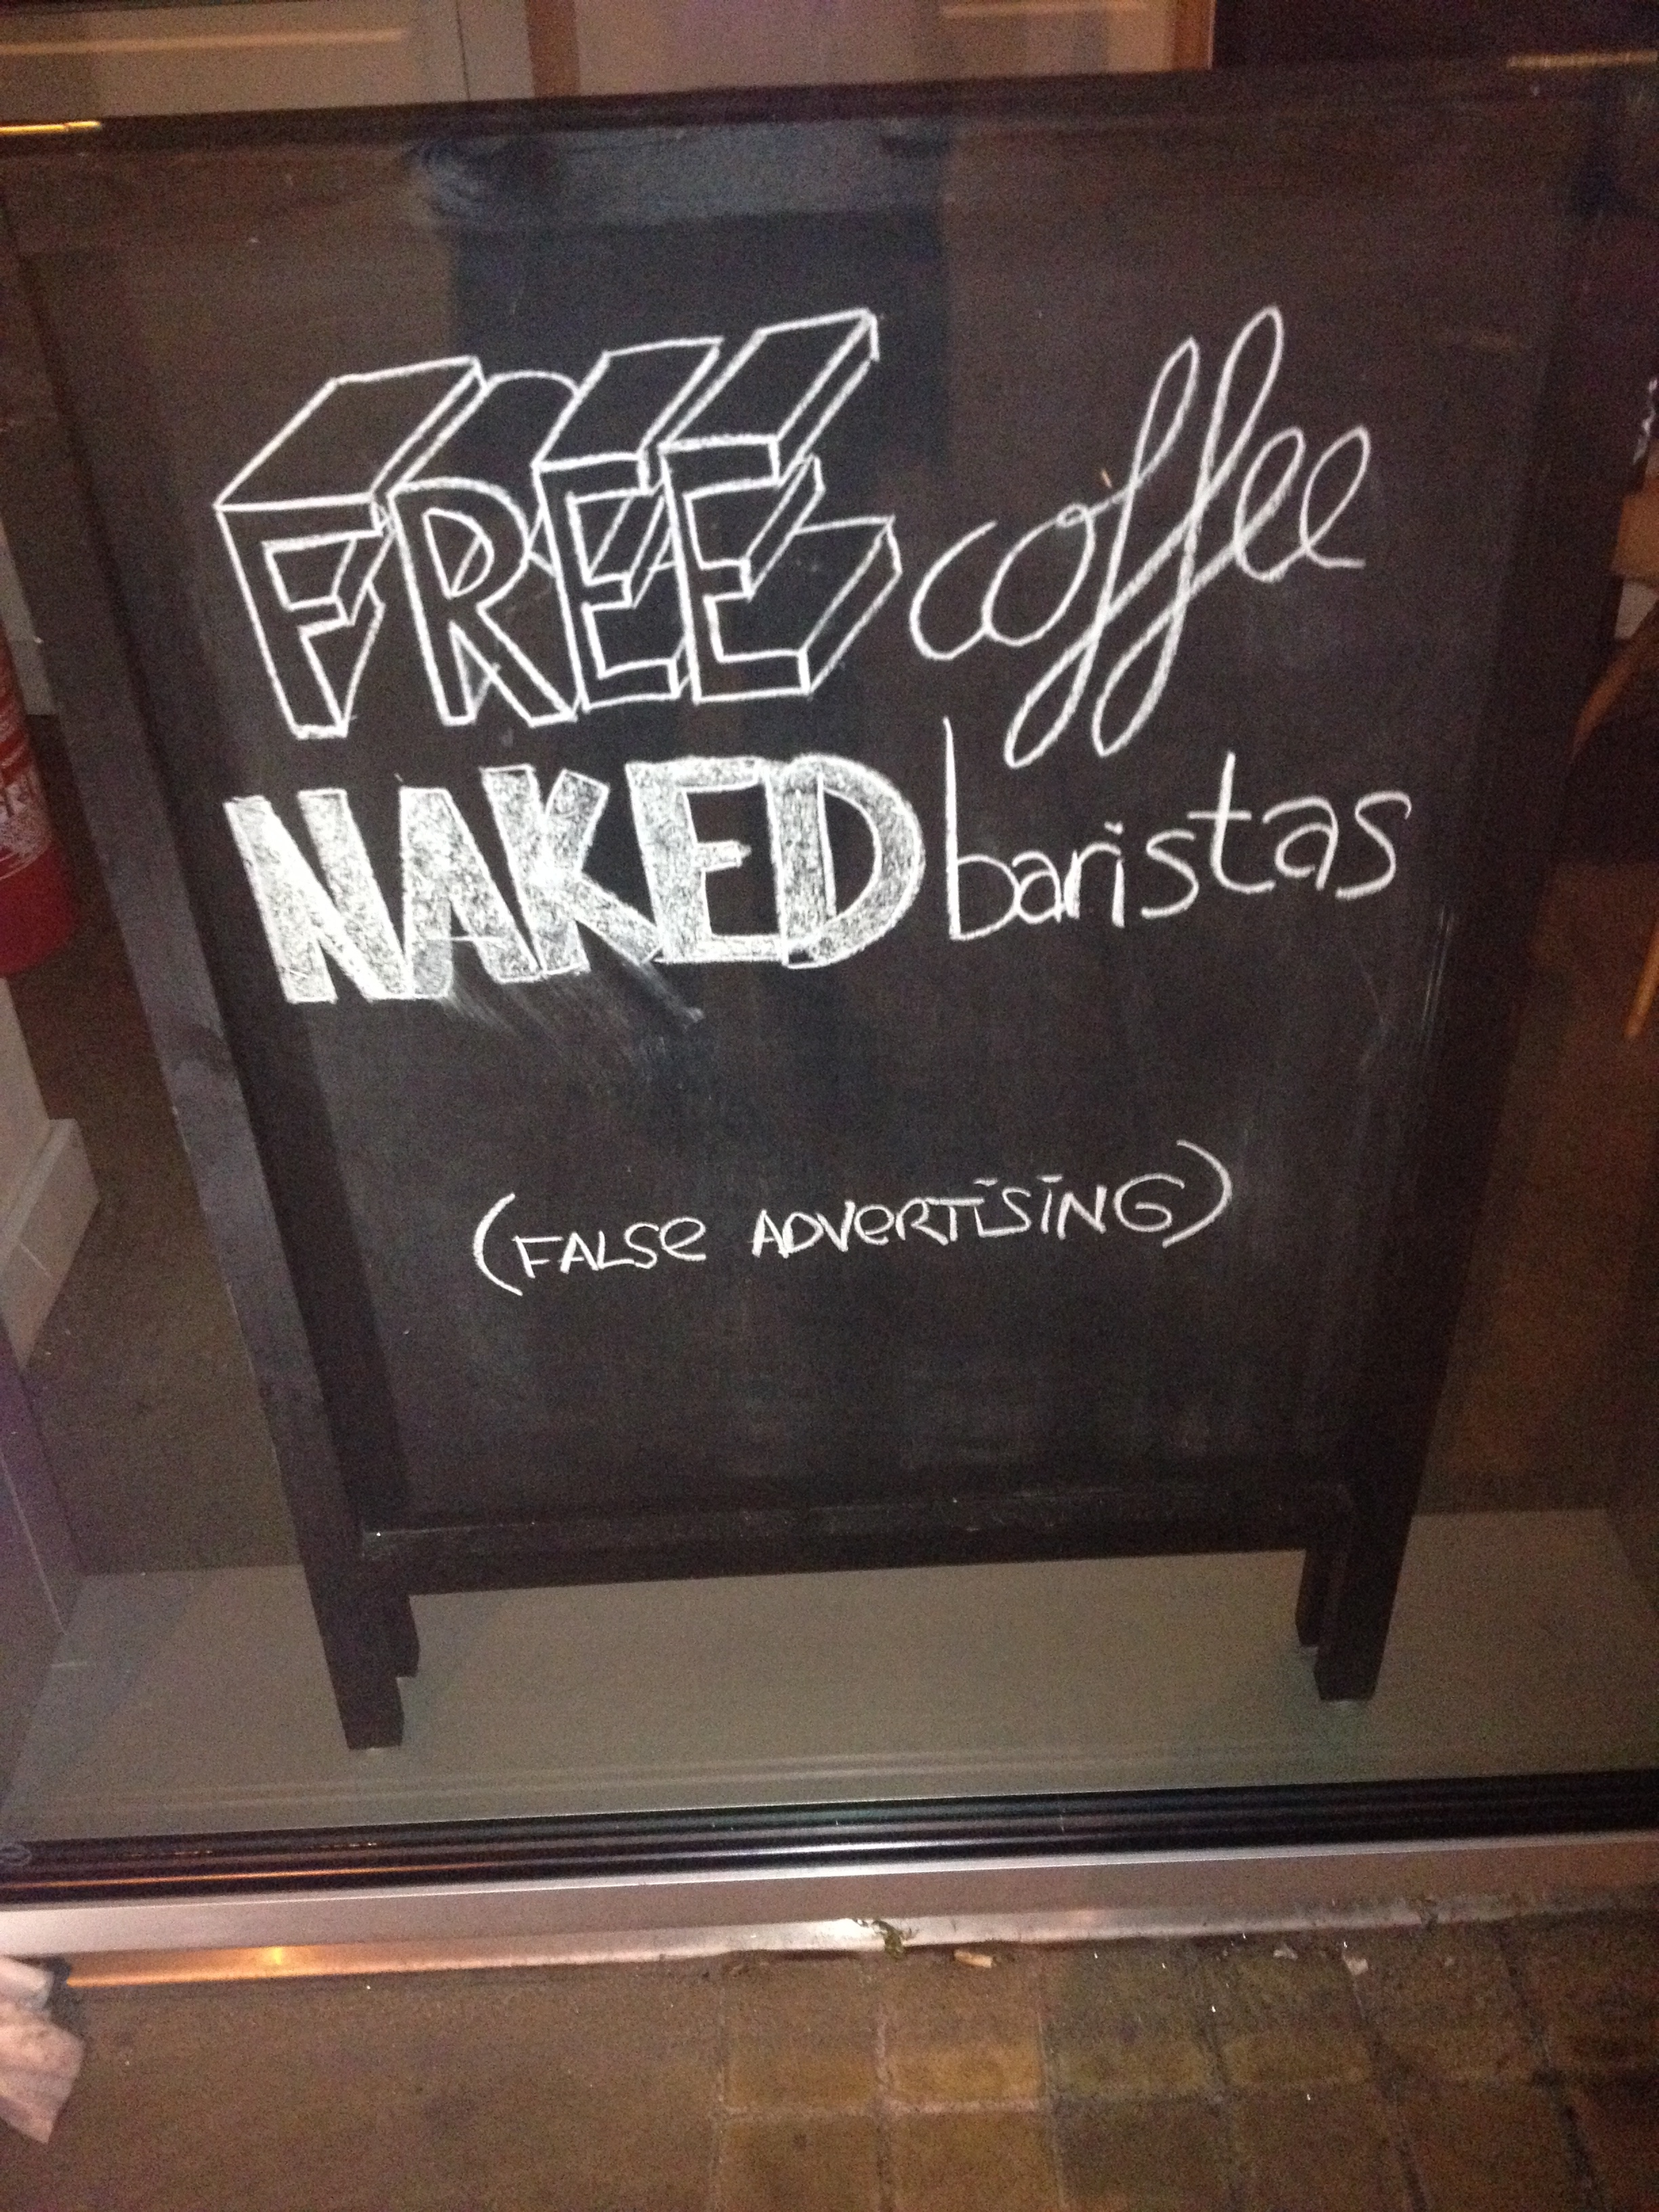 FREE coffee
NAKED baristas
(FALSe ADVeRTiSiNG)